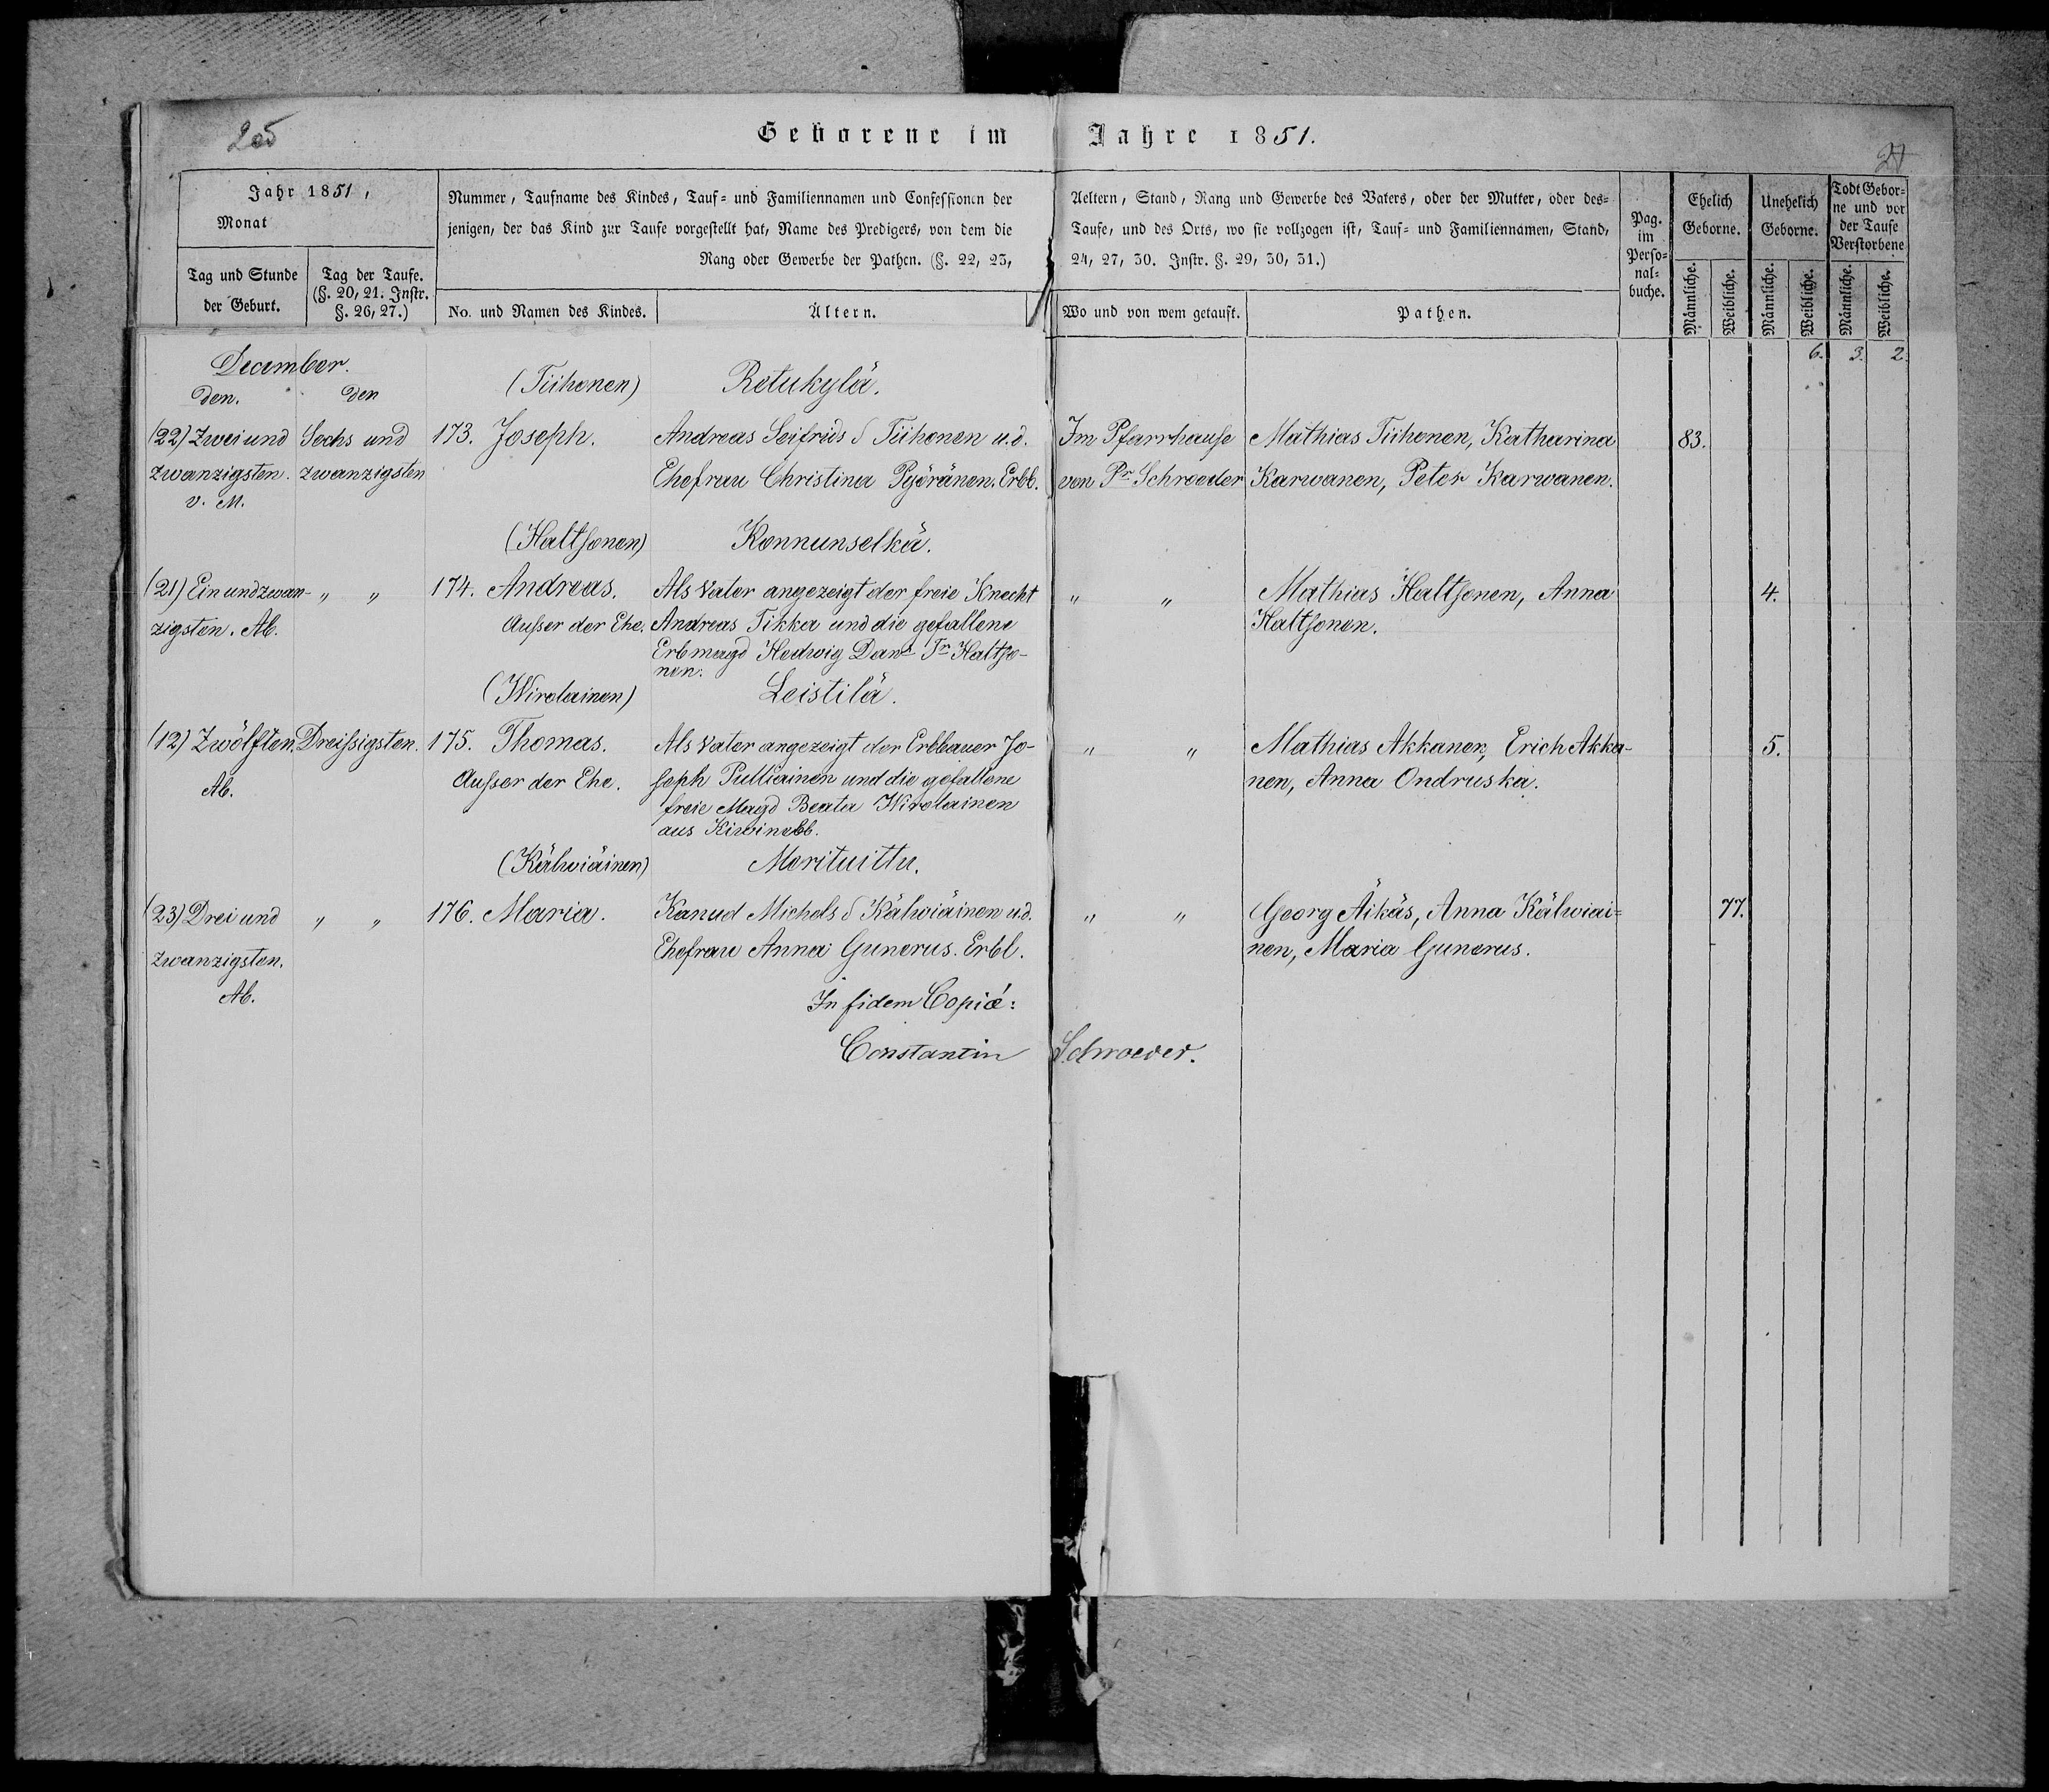 Geborene im Jahre 1851.
Jahr 1851,
Monat
Tag und Stunde der Geburt.
Tag der Taufe. (§. 20, 21. Instr. §. 26, 27.)
Nummer, Taufname des Kindes, Tauf- und Familiennamen und Confessionen der Aeltern, Stand, Rang und Gewerbe des Vaters, oder der Mutter, oder des-
jenigen, der das Kind zur Taufe vorgestellt hat, Name des Predigers, von dem die Taufe, und des Orts, wo sie vollzogen ist, Tauf- und Familiennamen, Stand,
Rang oder Gewerbe der Pathen. (§. 22, 23, 24, 27, 30. Instr. §. 29, 30, 31.)
No. und Namen des Kindes.
Ältern.
Wo und von wem getauft.
Pathen.
Pag. im Perso-nal-buche.
Ehelich Geborne.
Unehelich Geborne.
Todt Gebor-ne und vor der Taufe Verstorbene
Männliche. Weibliche. Männliche. Weibliche. Männliche. Weibliche.
6. 3. 2.
December.
den. den (Tiihonen) Retukylä.
(22) Zwei und Sechs und 173. Joseph. Andreas Seifrids S Tiihonen u. d. Im Pfarrhause Mathias Tiihonen, Katharina 83.
zwanzigsten. zwanzigsten Ehefrau Christina Pyöränen. Erbb. von Pr Schroeder Karwanen, Peter Karwanen.
v. M.
(Haltsonen) Konnunselkä.
(21) Ein und zwan- " " 174. Andreas. Als Vater angezeigt der freie Knecht " " Mathias Haltsonen, Anna 4.
zigsten. Ab. Ausser der Ehe. Andreas Tikka und die gefallene Haltsonen.
Erbmagd Hedwig Dans Tr Haltso-
nen.
(Wirolainen) Leistilä.
(12) Zwölften. Dreissigsten. 175. Thomas. Als Vater angezeigt der Erbbauer Jo- " " Mathias Akkanen, Erich Akka- 5.
Ab. Ausser der Ehe. seph Pulliainen und die gefallene nen, Anna Ondruska.
freie Magd Beata Wirolainen
aus Kiwinebb.
(Kälwiäinen) Morituittu.
(23) Drei und " " 176. Maria. Kanud Michels S Kälwiäinen u. d. " " Georg Äikäs, Anna Kälwiai- 77.
zwanzigsten. Ehefrau Anna Gunerus. Erbl. nen, Maria Gunerus.
Ab.
In fidem Copiæ:
Constantin Schroeder.